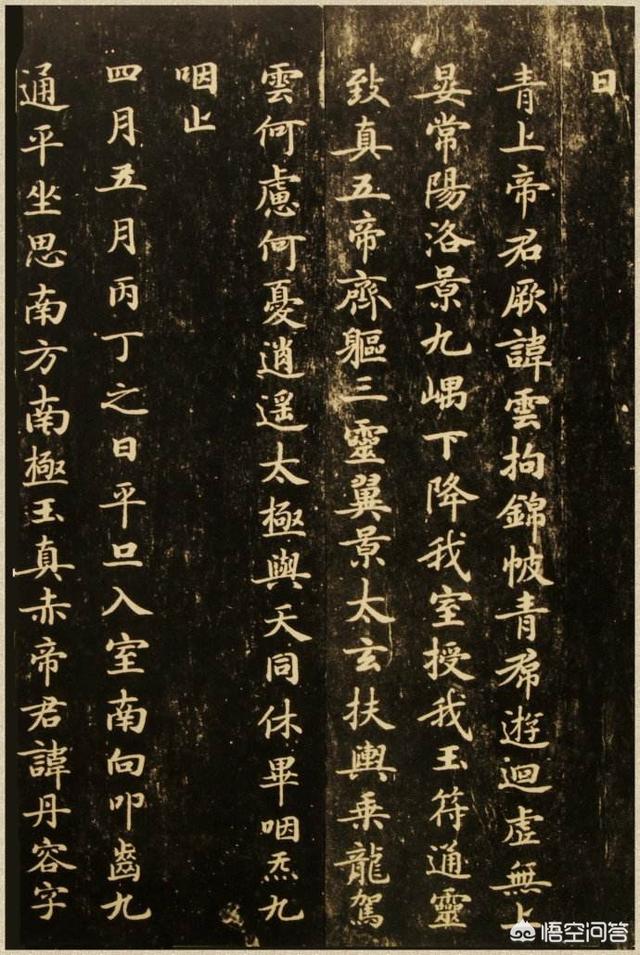 曰
青上帝君厥諱雲拘錦帔青帬遊迴虛無上
晏常陽洛景九嵎下降我室授我玉符通靈
致真五帝齊軀三靈翼景太玄扶輿乗龍駕
雲何慮何憂逍遥太極與天同休畢咽炁九
咽止
四月五月丙丁之日平旦入室南向叩齒九
通平坐思南方南極玉真赤帝君諱丹容字
悟空问答